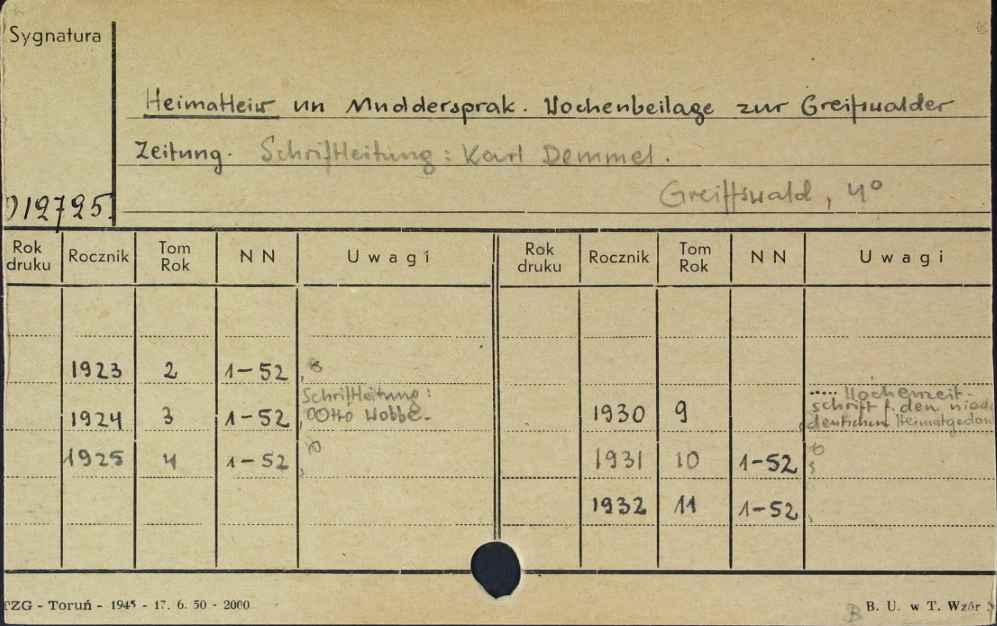 Sygnatura
Heimatleiw un Muddersprak. Wochenbeilage zur Greifswalder
Zeitung. Schriftleitung: Karl Demmel.
Greiffswald, 4°
012725.
Rok druku Rocznik Tom Rok NN Uwagi Rok druku Rocznik Tom Rok NN Uwagi
1923 2 1-52
Schriftleitung:
1924 3 1-52 Otto Wobbe-
1925 4 1-52
.... Wochenzeit-
1930 9 schrift f. den
deutschen
1931 10 1-52
1932 11 1-52
TZG - Toruń - 1945 - 17. 6. 50 - 2000
B B. U. w T. Wzór